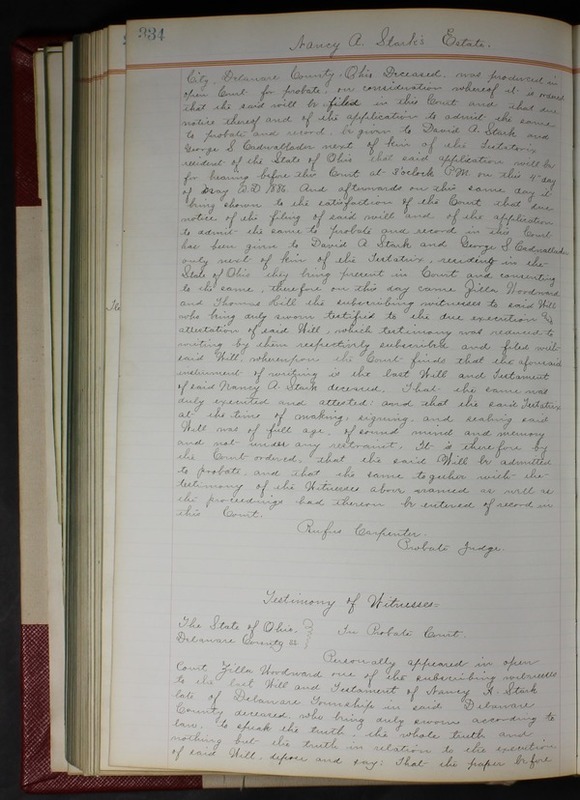 334
Nancy A. Stark's Estate.
City, Delaware County, Ohio Deceased, was produced in
open Court for probate, on consideration whereof it is ordered
that the said will be filed in this Court and that due
notice thereof and of the application to admit the same
to probate and record, be given to David A Stark and
George S Cadwallader next of kin of the Testatrix
resident of the State of Ohio that said application will be
for hearing before this Court at 3 o'clock P.M. on this day
of May A.D. 1886 And afterwards on this same day it
being shown to the satisfaction of the Court that due
notice of the filing of said will and of the application
to admit the same to probate and record in this Court
has been given to David A Stark and George S Cadwallader
only next of kin of the Testatrix, resident in the
State of Ohio they being present in Court and consenting
to the same, therefore on this day came Zilla Woodward
and Thomas Hill the subscribing witnesses to said Will
who being duly sworn testified to the due execution &
attestation of said Will, which testimony was reduced to
writing by them respectively subscribed and filed with
said Will, whereupon the Court finds that the aforesaid
instrument of writing is the last Will and Testament
of said Nancy A. Stark deceased. That the same was
duly executed and attested: and that the said Testatrix
at the time of making, signing, and sealing said
Will was of full age, of sound mind and memory
and not under any restraint. It is therefore by
the Court ordered, that the said Will be admitted
to probate, and that the same together with the
testimony of the Witnesses above named as well as
the proceedings had thereon be entered of record in
this Court.
Rufus Carpenter
Probate Judge.
Testimony of Witnesses=
The State of Ohio,
Delaware County ss
In Probate Court.
Personally appeared in open
Court Zilla Woodward one of the subscribing witnesses
to the last Will and Testament of Nancy A. Stark
late of Delaware Township in said Delaware
County deceased, who being duly sworn according to
law, to speak the truth, the whole truth and
nothing but the truth in relation to the execution
of said Will, depose and say: That the paper before